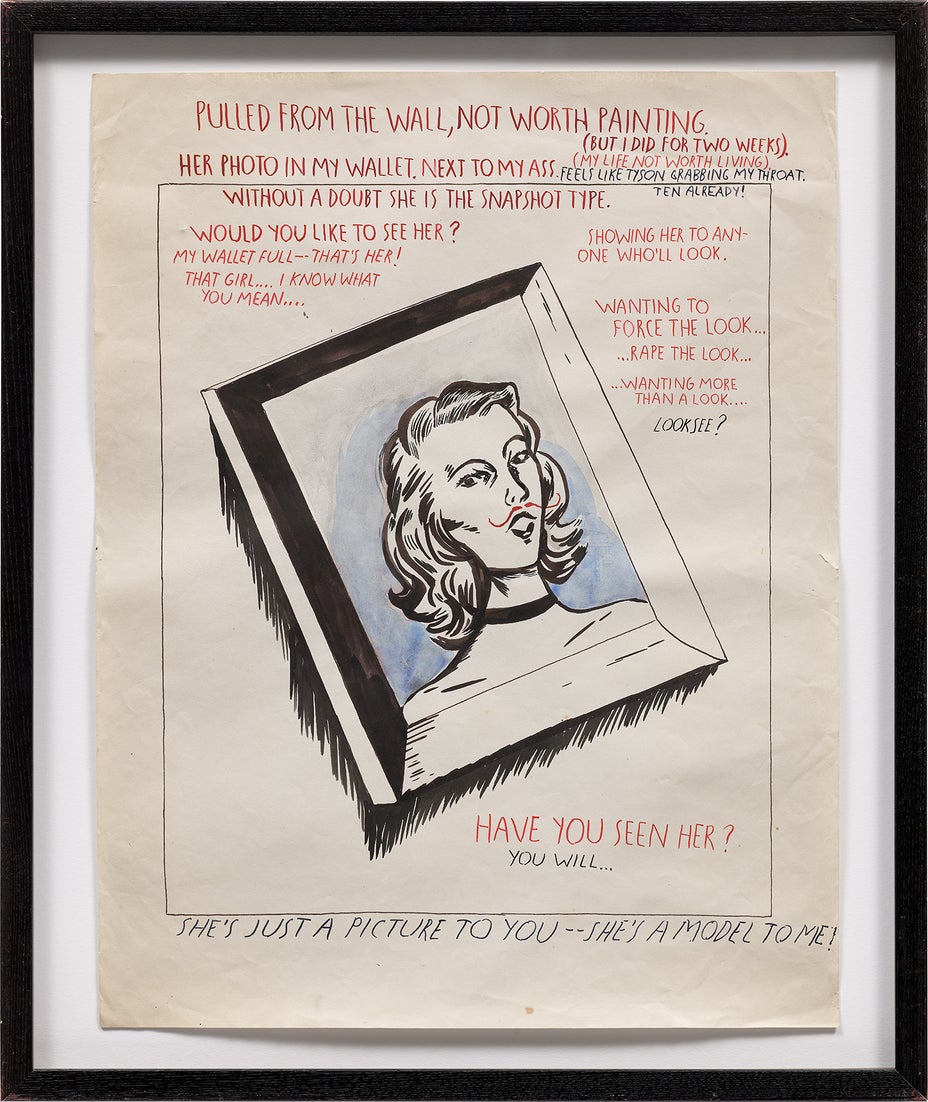 PULLED FROM THE WALL, NOT WORTH PAINTING.
(BUT I DID FOR TWO WEEKS).
HER PHOTO IN MY WALLET. NEXT TO MY ASS.
(MY LIFE NOT WORTH LIVING)
FEELS LIKE TYSON GRABBING MY THROAT.
TEN ALREADY!
WITHOUT A DOUBT SHE IS THE SNAPSHOT TYPE.
WOULD YOU LIKE TO SEE HER?
MY WALLET FULL--THAT'S HER!
THAT GIRL.... I KNOW WHAT
YOU MEAN....
SHOWING HER TO ANY-
ONE WHO'LL LOOK.
WANTING TO
FORCE THE LOOK...
...RAPE THE LOOK...
...WANTING MORE
THAN A LOOK....
LOOKSEE?
HAVE YOU SEEN HER?
YOU WILL...
SHE'S JUST A PICTURE TO YOU--SHE'S A MODEL TO ME!